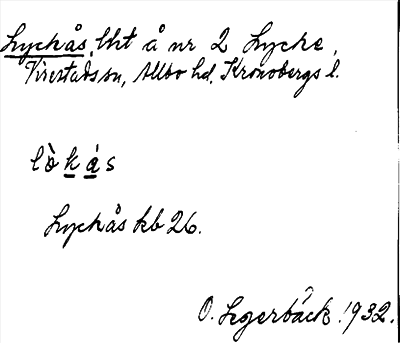 Lyckås, lht å nr 2 Lycke,
Virestads sn, Allbo hd, Kronobergs l.
lò̀kás
Lyckås kb 26.
O. Segerbäck. 1932.